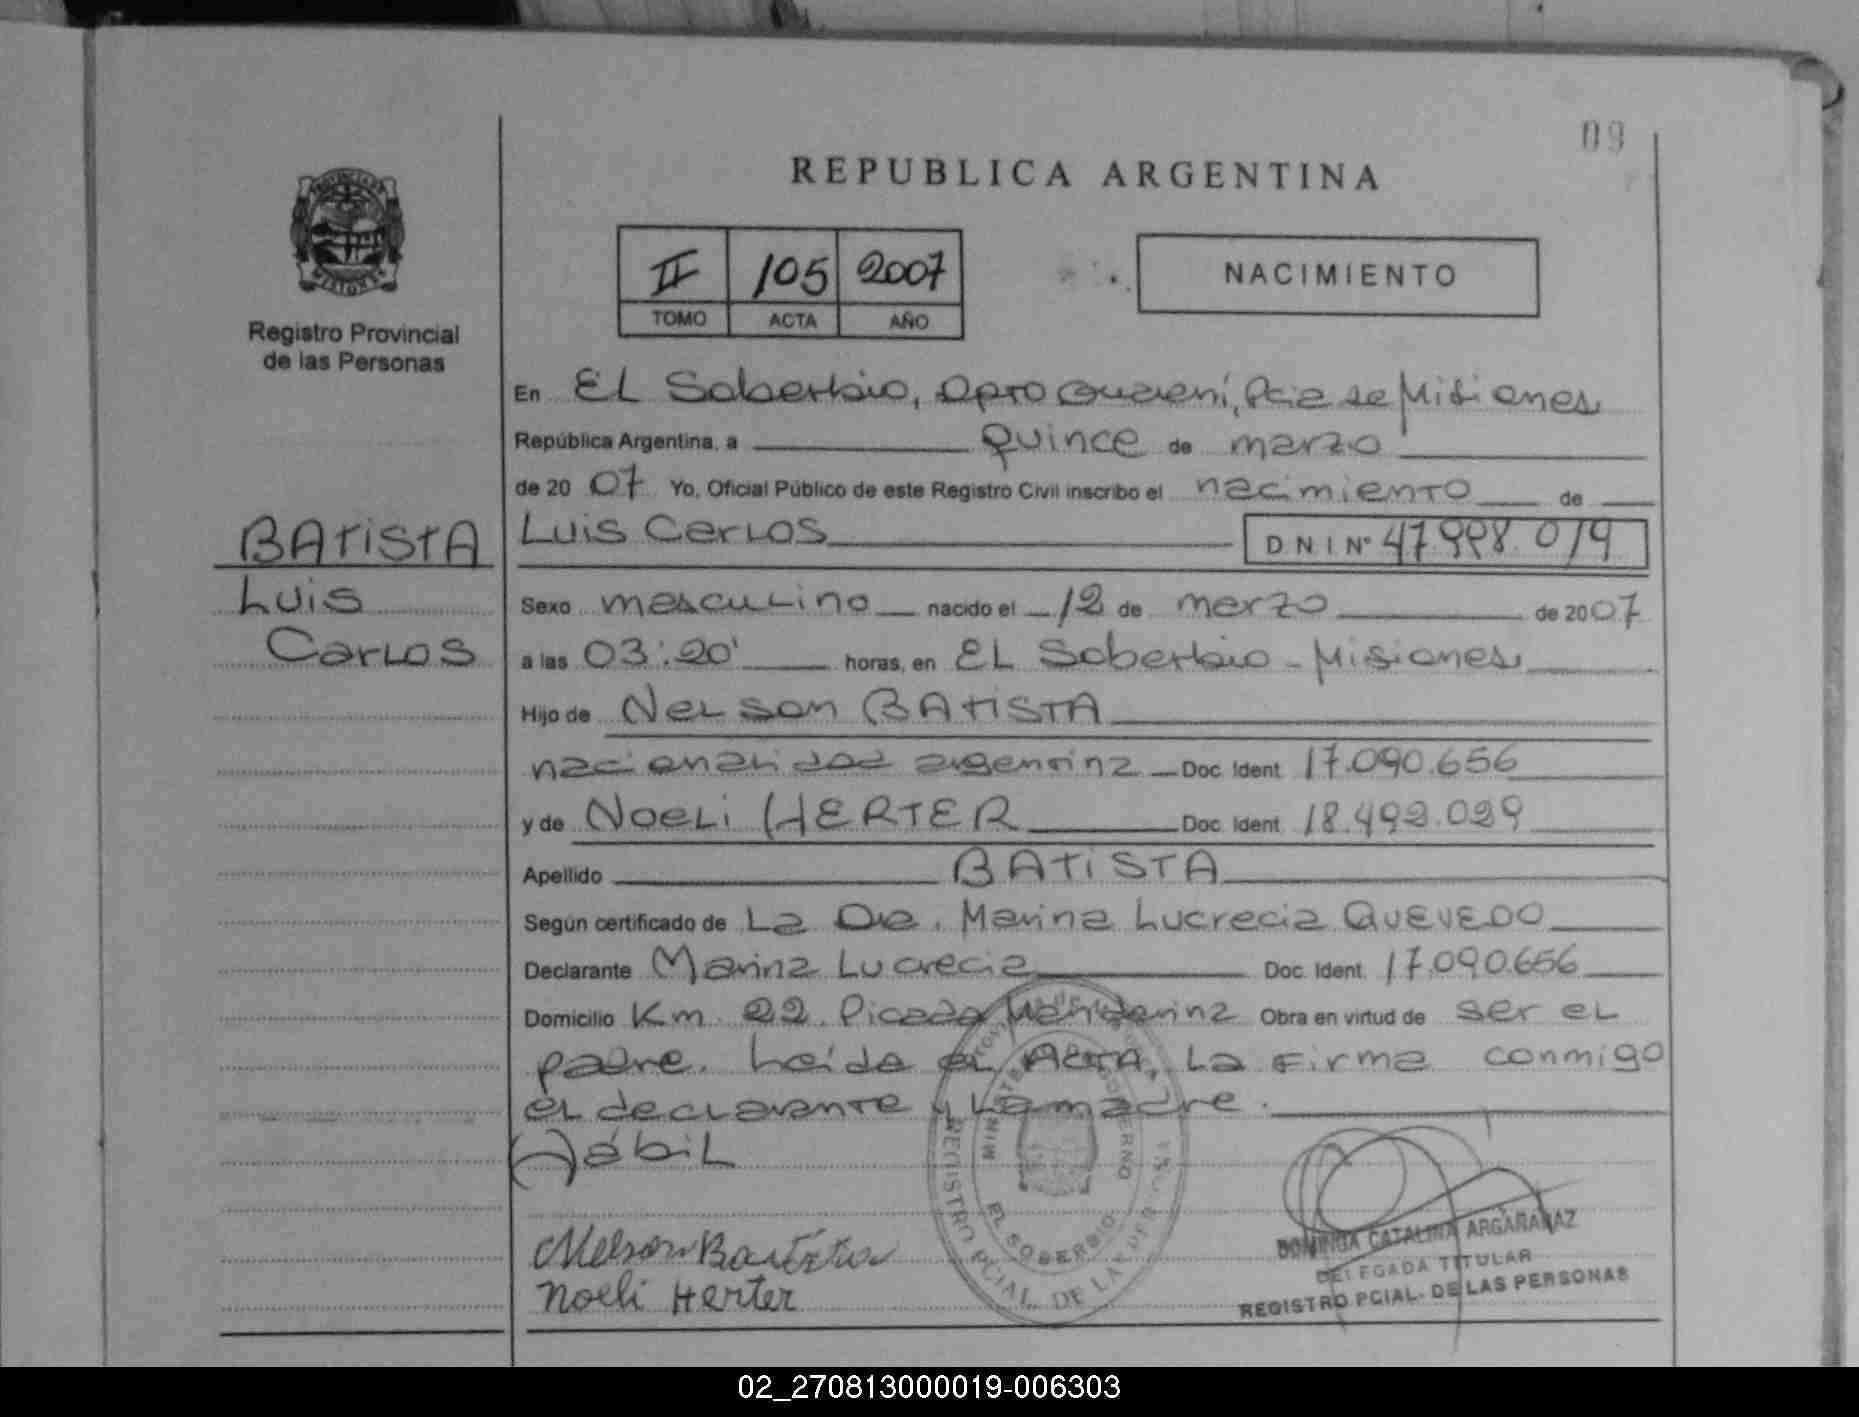 09
REPUBLICA ARGENTINA
PROVINCIA DE
MISIONES
Registro Provincial
de las Personas
II 105 2007
TOMO ACTA AÑO
NACIMIENTO
En EL Soberbio, Dpto Guarani, Pcia de Misiones
República Argentina, a Quince de marzo
de 2007 Yo, Oficial Público de este Registro Civil inscribo el nacimiento de
BATISTA
Luis
Carlos
Luis Carlos DNI Nº 47.998.019
Sexo masculino nacido el 12 de marzo de 2007
a las 03:20' horas, en EL Soberbio - Misiones
Hijo de Nelson BATISTA
nacionalidad argentina Doc. Ident. 17.090.656
y de Noeli HERTER Doc. Ident. 18.492.029
Apellido BATISTA
Según certificado de La Dra. Marina Lucrecia QUEVEDO
Declarante Marina Lucrecia Doc. Ident. 17.090.656
Domicilio Km. 22. Picada Mandarina Obra en virtud de ser el
padre. Leída el ACTA, La Firma conmigo
el declarante y La madre.
Hábil
Nelson Batista
Noeli Herter
MINISTERIO DE GOBIERNO
EL SOBERBIO
REGISTRO PCIAL. DE LAS PERSONAS
DOMINGA CATALINA ARGAÑARAZ
DELEGADA TITULAR
REGISTRO PCIAL. DE LAS PERSONAS
02_270813000019-006303